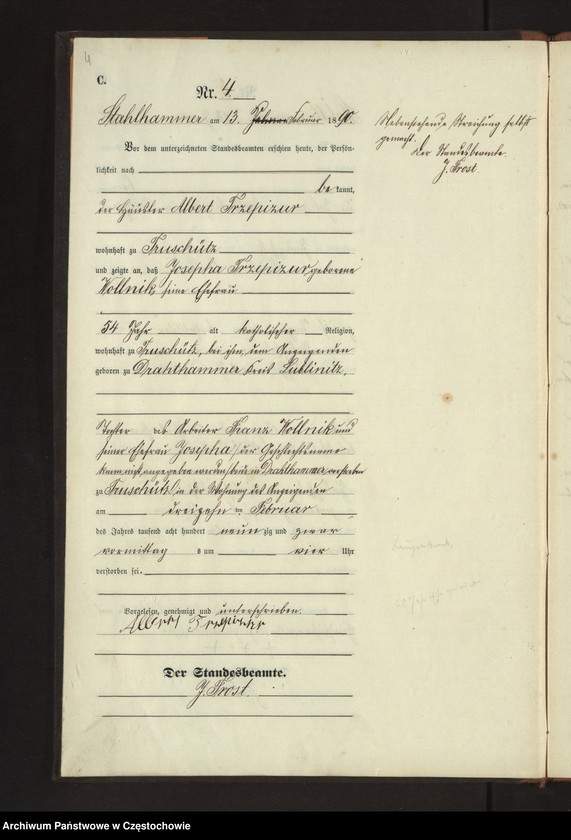 4
C.
Nr. 4
Stahlhammer am 13. Februar 1890.
Vor dem unterzeichneten Standesbeamten erschien heute, der Persön-
lichkeit nach
bekannt,
der Häusler Albert Trzepizur
wohnhaft zu Truschütz
und zeigte an, daß Josepha Trzepizur geborene
Wollnik, seine Ehefrau
54 Jahr alt katholischer Religion,
wohnhaft zu Truschütz, bei ihm, dem Anzeigenden
geboren zu Drahthammer Kreis Lublinitz,
Tochter des Arbeiter Franz Wollnik und
seiner Ehefrau Josepha (der Geschlechtsname
kann nicht angegeben werden) beide in Drahthammer verstorben
zu Truschütz in der Wohnung des Anzeigenden
am dreizehn ten Februar
des Jahres tausend acht hundert neunzig und zwar
vormittags um vier Uhr
verstorben sei.
Vorgelesen, genehmigt und unterschrieben.
Albert Trzepizur
Der Standesbeamte.
J. Frost.
Nebenstehende Streichung selbst
gemacht.
Der Standesbeamte.
J. Frost.
Archiwum Państwowe w Częstochowie